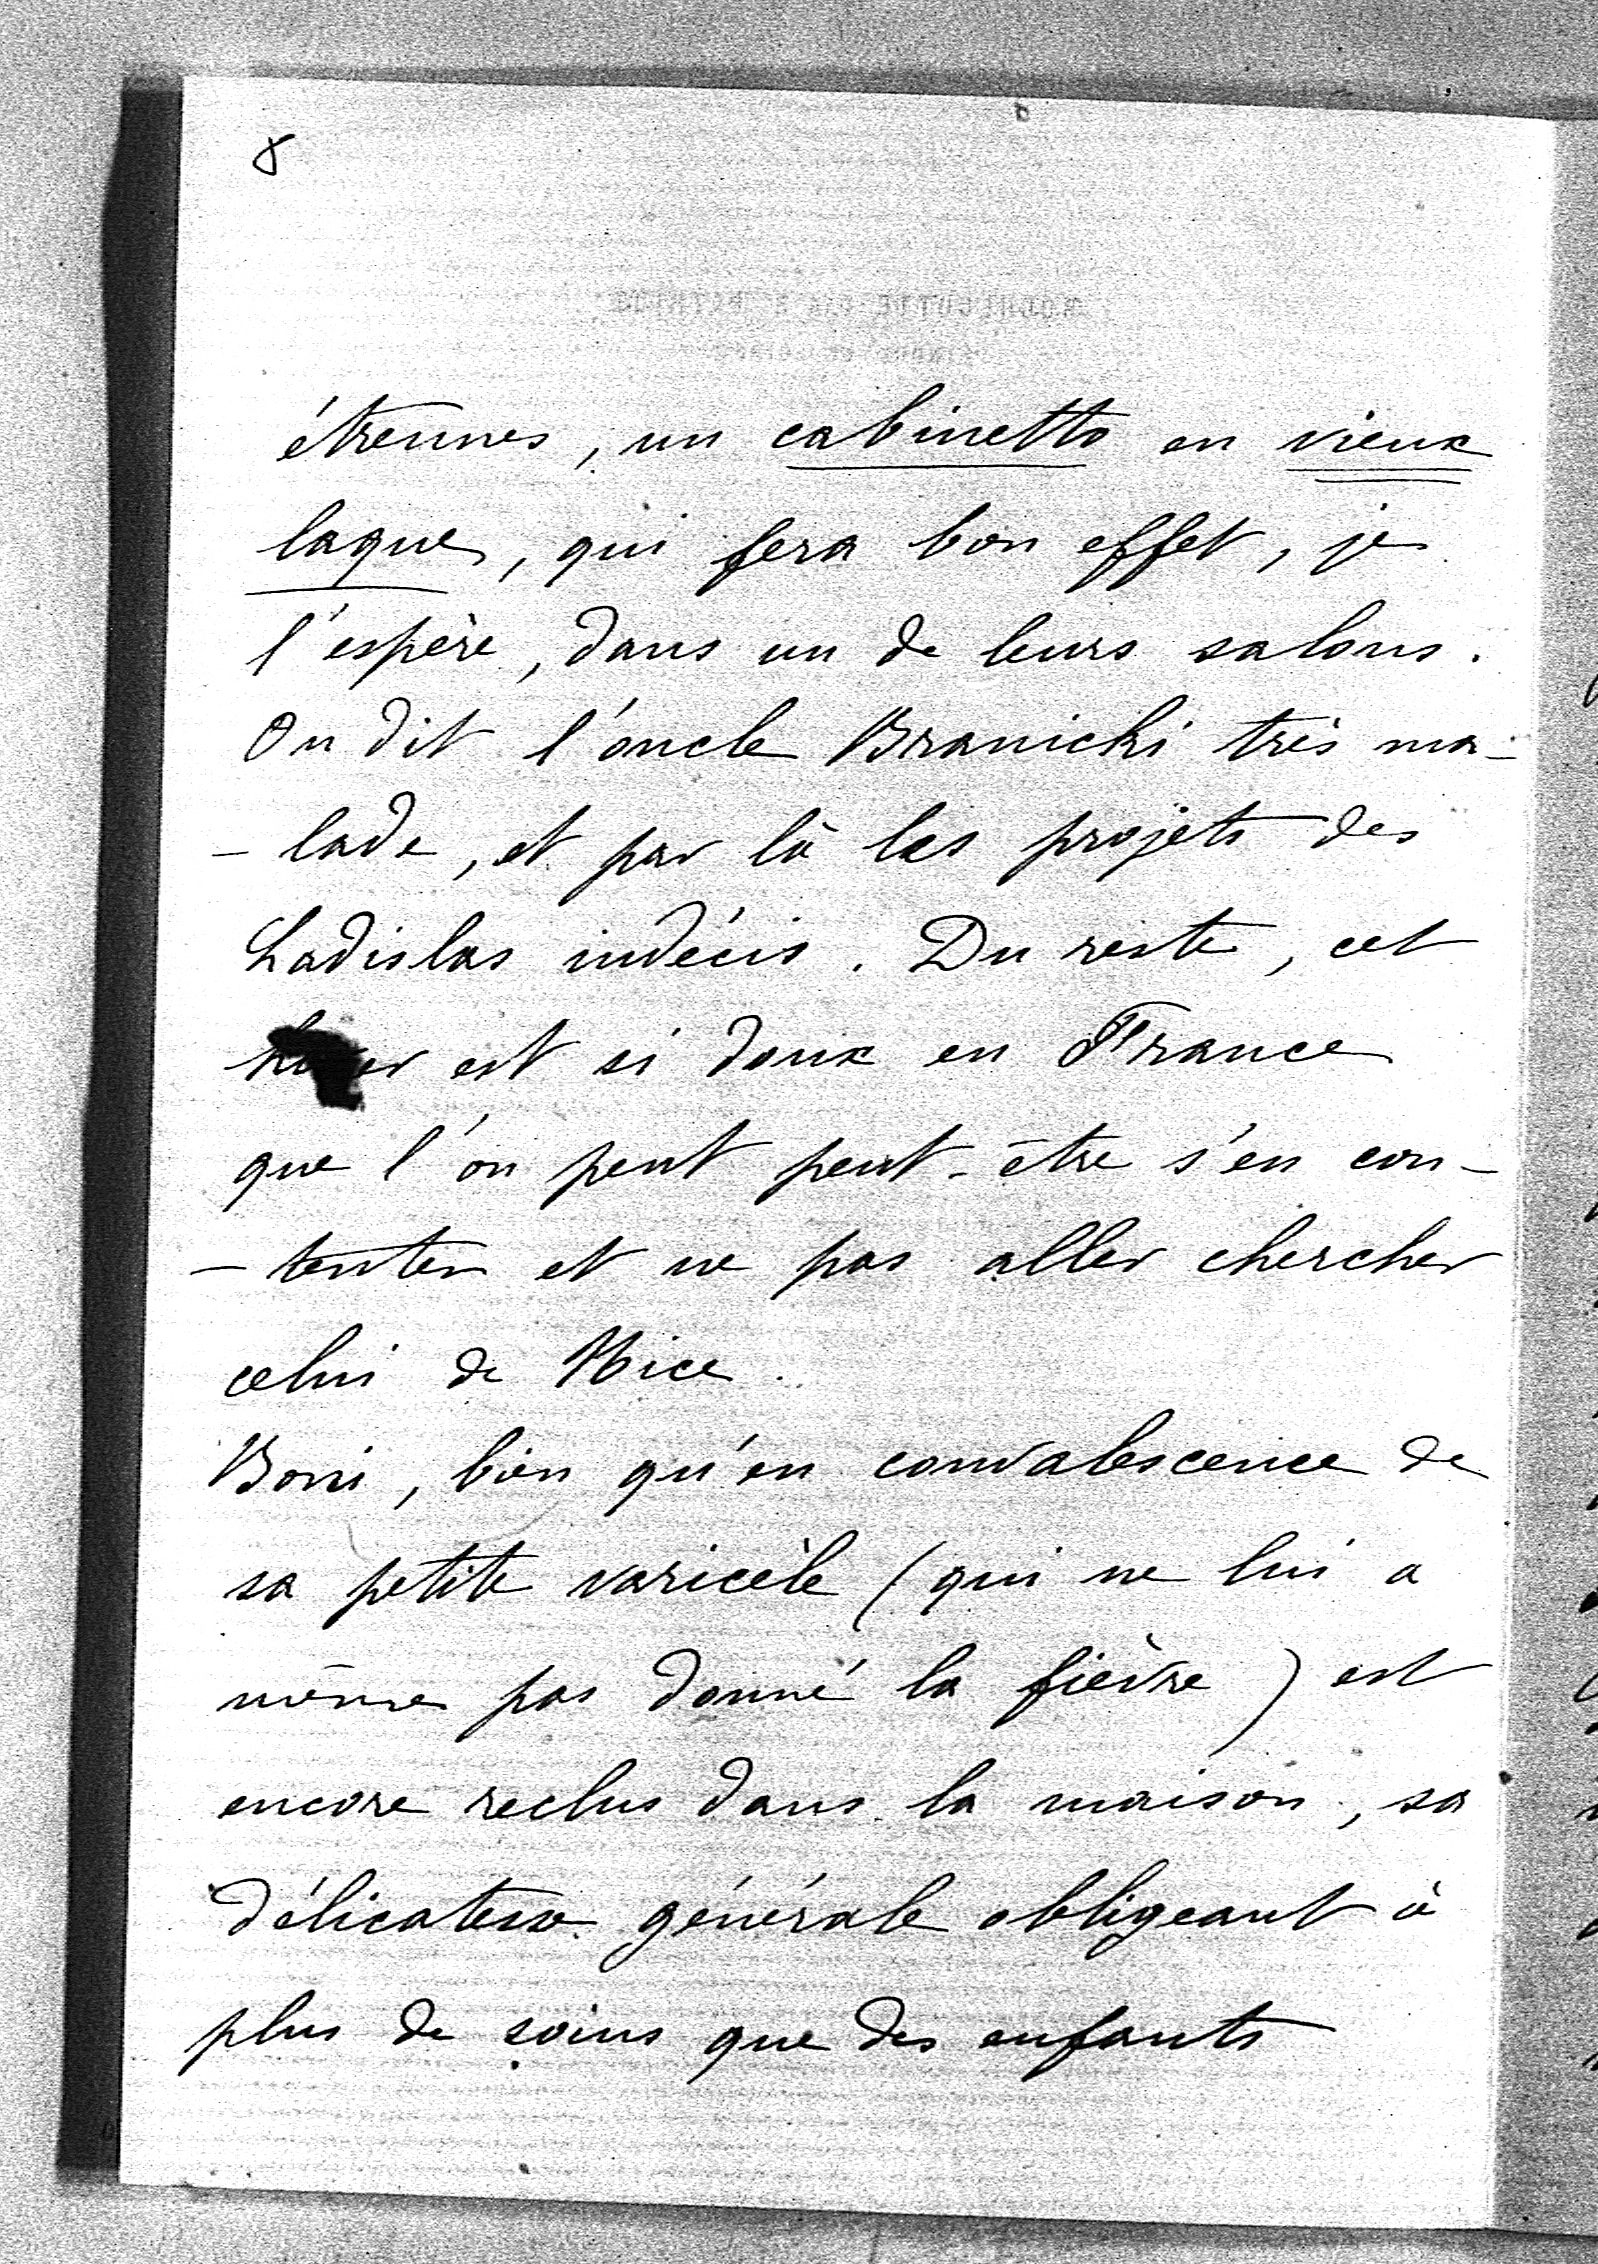 8
étrennes, un cabinetto en vieux
laque, qui fera bon effet, je
l'espère, dans un de leurs salons.
On dit l'oncle Branicki très ma-
- lade, et par là les projets des
Ladislas indécis. Du reste, cet
hiver est si doux en France
que l'on peut peut-être s'en con-
- tenter et ne pas aller chercher
celui de Nice.
Boni, bien qu'en convalescence de
sa petite varicèle (qui ne lui a
même pas donné la fièvre) est
encore reclus dans la maison, sa
délicatesse générale obligeant à
plus de soins que des enfants